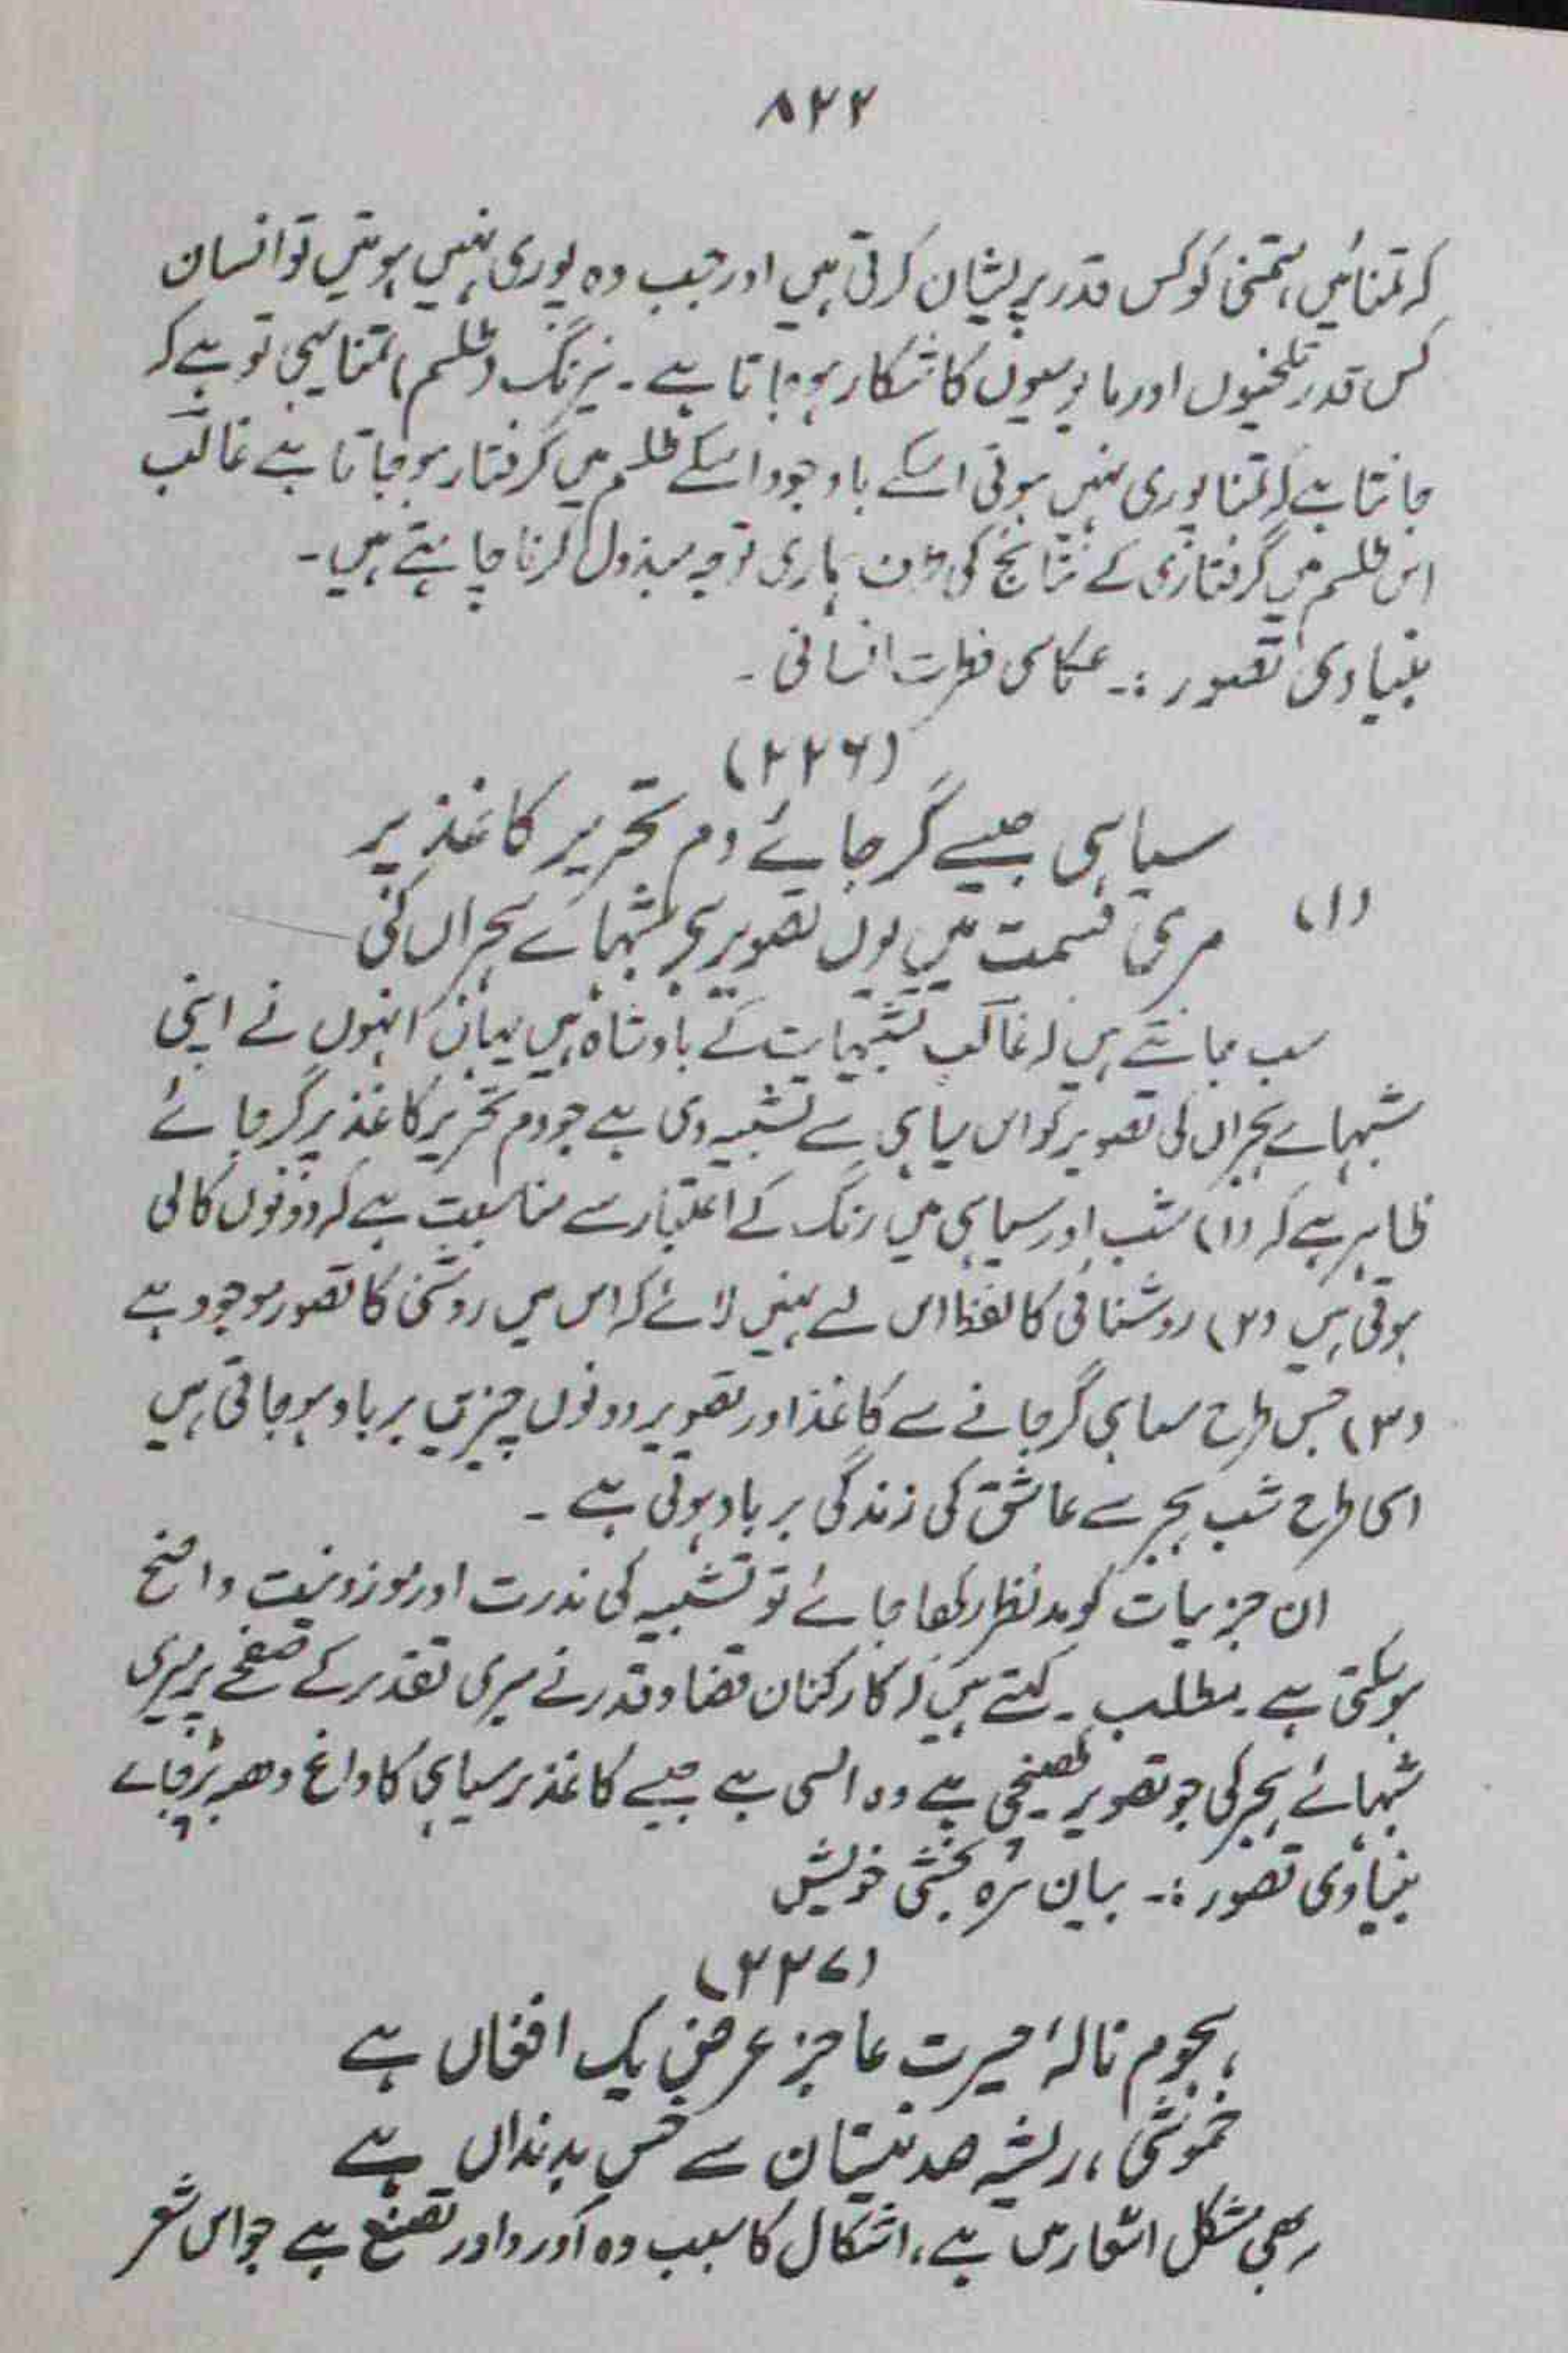 ۸۲۲
کہ تمنائیں، متمنی کو کس قدر پریشان کرتی ہیں اور جب وہ پوری نہیں ہوتیں تو انسان
کس قدر تلخیوں اور مایوسیوں کا شکار ہو جاتا ہے۔ نیرنگ (طلسم) تمنا یہی تو ہے کہ
جانتا ہے کہ تمنا پوری نہیں ہوتی اسکے باوجود اسکے طلسم میں گرفتار ہو جاتا ہے غالبؔ
اس طلسم میں گرفتاری کے نتائج کی طرف ہماری توجہ مبذول کرنا چاہتے ہیں۔
بنیادی تصور :۔ عکاسی فطرت انسانی۔
(۲۲۶)
سیاہی جیسے گر جائے دم تحریر کاغذ پر
(۱) مری قسمت میں یوں تصویر ہے شبہائے ہجراں کی
سب جانتے ہیں کہ غالبؔ تشبیہات کے بادشاہ ہیں یہاں انہوں نے اپنی
شبہائے ہجراں کی تصویر کو اس سیاہی سے تشبیہ دی ہے جو دم تحریر کاغذ پر گر جائے
ظاہر ہے کہ (۱) شب اور سیاہی میں رنگ کے اعتبار سے مناسبت ہے کہ دونوں کالی
ہوتی ہیں (۲) روشنائی کا لفظ اس لے نہیں لائے کہ اس میں روشنی کا تصور موجود ہے
(۳) جس طرح سیاہی گر جانے سے کاغذ اور تصویر دونوں چیزیں برباد ہو جاتی ہیں
اسی طرح شب ہجر سے عاشق کی زندگی برباد ہوتی ہے۔
ان جزیات کو مدنظر رکھا جائے تو تشبیہ کی ندرت اور موزونیت واضح
ہو سکتی ہے۔ مطلب۔ کہتے ہیں کہ کارکنان قضا و قدر نے میری تقدیر کے صفحے پر میری
شبہائے ہجر کی جو تصویر کھینچی ہے وہ ایسی ہے جیسے کاغذ پر سیاہی کا داغ دھبہ پڑ جائے
بنیادی تصور :۔ بیان تیرہ بختی خویش
(۲۲۷)
ہجوم نالہ، حیرت عاجز عرض یک افغاں ہے
خموشی، ریشہ صد نیستان سے خس بدنداں ہے
یہ بھی مشکل اشعار میں ہے، اشکال کا سبب وہ آورد اور تصنع ہے جو اس شعر